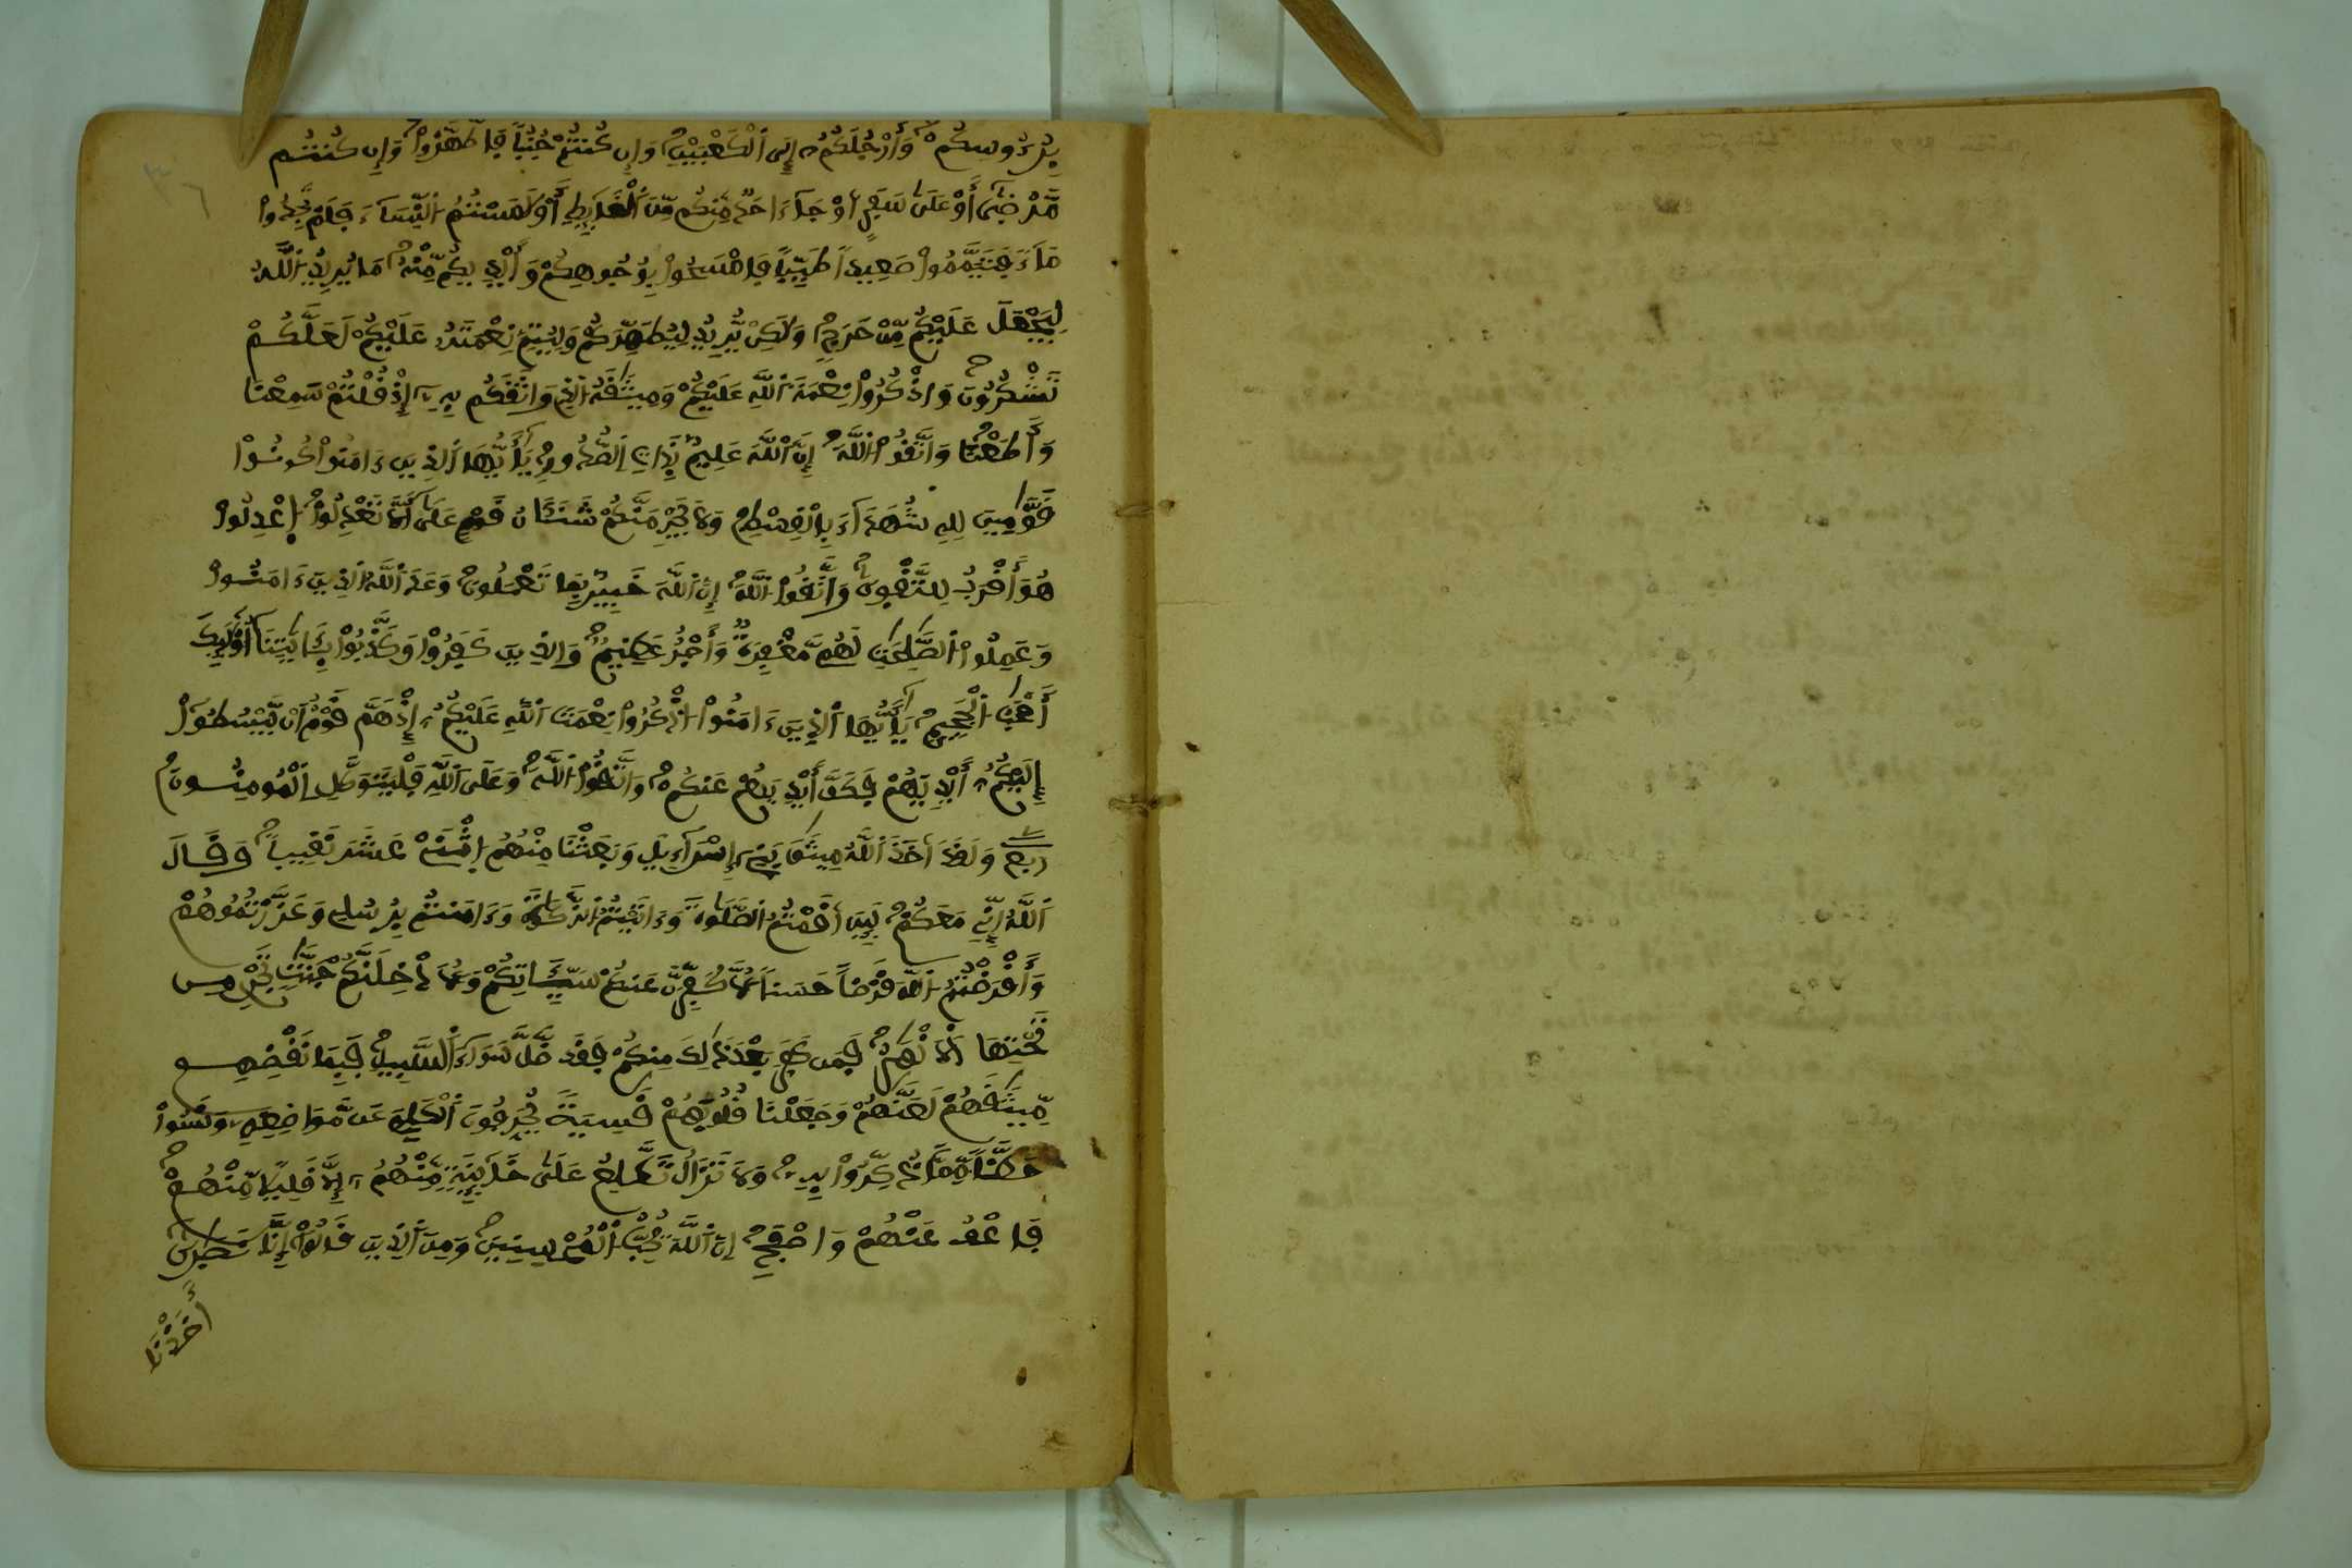 بِرُءُوسِكُمْ وَأَرْجُلَكُمُ إِلَى اَلْكَعْبَيْنِ وَإِن كُنتُمْ جُنُباً فَاطَّهَّرُواْ وَإِن كُنتُم
مَّرْضَىٰ أَوْ عَلَىٰ سَفَرٍ اَوْ جَآءَ احَدٌ مِّنكُم مِّنَ اَلْغَآيِطِ أَوْ لَٰمَسْتُمُ اُلنِّسَآءَ فَلَمْ تَجِدُواْ
مَآءً فَتَيَمَّمُواْ صَعِيداً طَيِّباً فَامْسَحُواْ بِوُجُوهِكُمْ وَأَيْدِيكُم مِّنْهُ مَا يُرِيدُ اُللَّهُ
لِيَجْعَلَ عَلَيْكُم مِّنْ حَرَجٍ وَلَٰكِنْ يُّرِيدُ لِيُطَهِّرَكُمْ وَلِيُتِمَّ نِعْمَتَهُ عَلَيْكُمْ لَعَلَّكُمْ
تَشْكُرُونَ وَاذْكُرُواْ نِعْمَةَ اَللَّهِ عَلَيْكُمْ وَمِيثَٰقَهُ اُلذِے وَاثَقَكُم بِهِ إِذْ قُلْتُمْ سَمِعْنَا
وَأَطَعْنَا وَاتَّقُواْ اُللَّهَ إِنَّ اَللَّهَ عَلِيمٌ بِذَاتِ اِلصُّدُورِ يَٰأَيُّهَا اَلذِينَ ءَامَنُواْ كُونُواْ
قَوَّٰمِينَ لِلهِ شُهَدَآءَ بِالْقِسْطِ وَلَا يَجْرِمَنَّكُمْ شَنَـَٔانُ قَوْمٍ عَلَىٰ أَلَّا تَعْدِلُواْ اِعْدِلُواْ
هُوَ أَقْرَبُ لِلتَّقْوِىٰ وَاتَّقُواْ اُللَّهَ إِنَّ اَللَّهَ خَبِيرٌ بِمَا تَعْمَلُونَ وَعَدَ اَللَّهُ اُلذِينَ ءَامَنُواْ
وَعَمِلُواْ اُلصَّٰلِحَٰتِ لَهُم مَّغْفِرَةٌ وَأَجْرٌ عَظِيمٌ وَالذِينَ كَفَرُواْ وَكَذَّبُواْ بِـَٔايَٰتِنَا أُوْلَٰٓئِكَ
أَصْحَٰبُ اُلْجَحِيمِ يَٰأَيُّهَا اَلذِينَ ءَامَنُواْ اُذْكُرُواْ نِعْمَتَ اَللَّهِ عَلَيْكُمُ إِذْ هَمَّ قَوْمٌ اَنْ يَّبْسُطُواْ
إِلَيْكُمُ أَيْدِيَهُمْ فَكَفَّ أَيْدِيَهُمْ عَنكُمْ وَاتَّقُواْ اُللَّهَ وَعَلَى اَللَّهِ فَلْيَتَوَكَّلِ اِلْمُومِنُونَ
ربع وَلَقَدَ اَخَذَ اَللَّهُ مِيثَٰقَ بَنِے إِسْرَآءِيلَ وَبَعَثْنَا مِنْهُمُ اُثْنَےْ عَشَرَ نَقِيباً وَقَالَ
اَللَّهُ إِنِّے مَعَكُمْ لَئِنَ اَقَمْتُمُ اُلصَّلَوٰةَ وَءَاتَيْتُمُ اُلزَّكَوٰةَ وَءَامَنتُم بِرُسُلِے وَعَزَّرْتُمُوهُمْ
وَأَقْرَضْتُمُ اُللَّهَ قَرْضاً حَسَناً لَّأُكَفِّرَنَّ عَنكُمْ سَيِّـَٔاتِكُمْ وَلَأُدْخِلَنَّكُمْ جَنَّٰتٍ تَجْرِے مِن
تَحْتِهَا اَلَانْهَٰرُ فَمَن كَفَرَ بَعْدَ ذَٰلِكَ مِنكُمْ فَقَد ضَّلَّ سَوَآءَ اَلسَّبِيلِ فَبِمَا نَقْضِهِم
مِّيثَٰقَهُمْ لَعَنَّٰهُمْ وَجَعَلْنَا قُلُوبَهُمْ قَٰسِيَةً يُحَرِّفُونَ اَلْكَلِمَ عَن مَّوَاضِعِهِ وَنَسُواْ
حَظّاً مِّمَّا ذُكِّرُواْ بِهِ وَلَا تَزَالُ تَطَّلِعُ عَلَىٰ خَآئِنَةٍ مِّنْهُمُ إِلَّا قَلِيلاً مِّنْهُمْ
فَاعْفُ عَنْهُمْ وَاصْفَحِ اِنَّ اَللَّهَ يُحِبُّ اُلْمُحْسِنِينَ وَمِنَ اَلذِينَ قَالُواْ إِنَّا نَصَٰرَىٰ
أَخَذْنَا